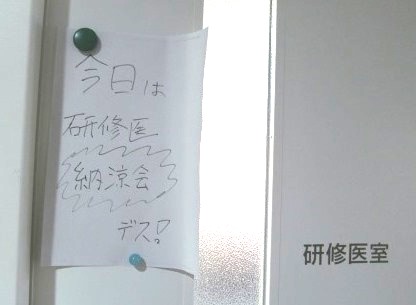 今日は
研修医
納涼会
デス!
研修医室